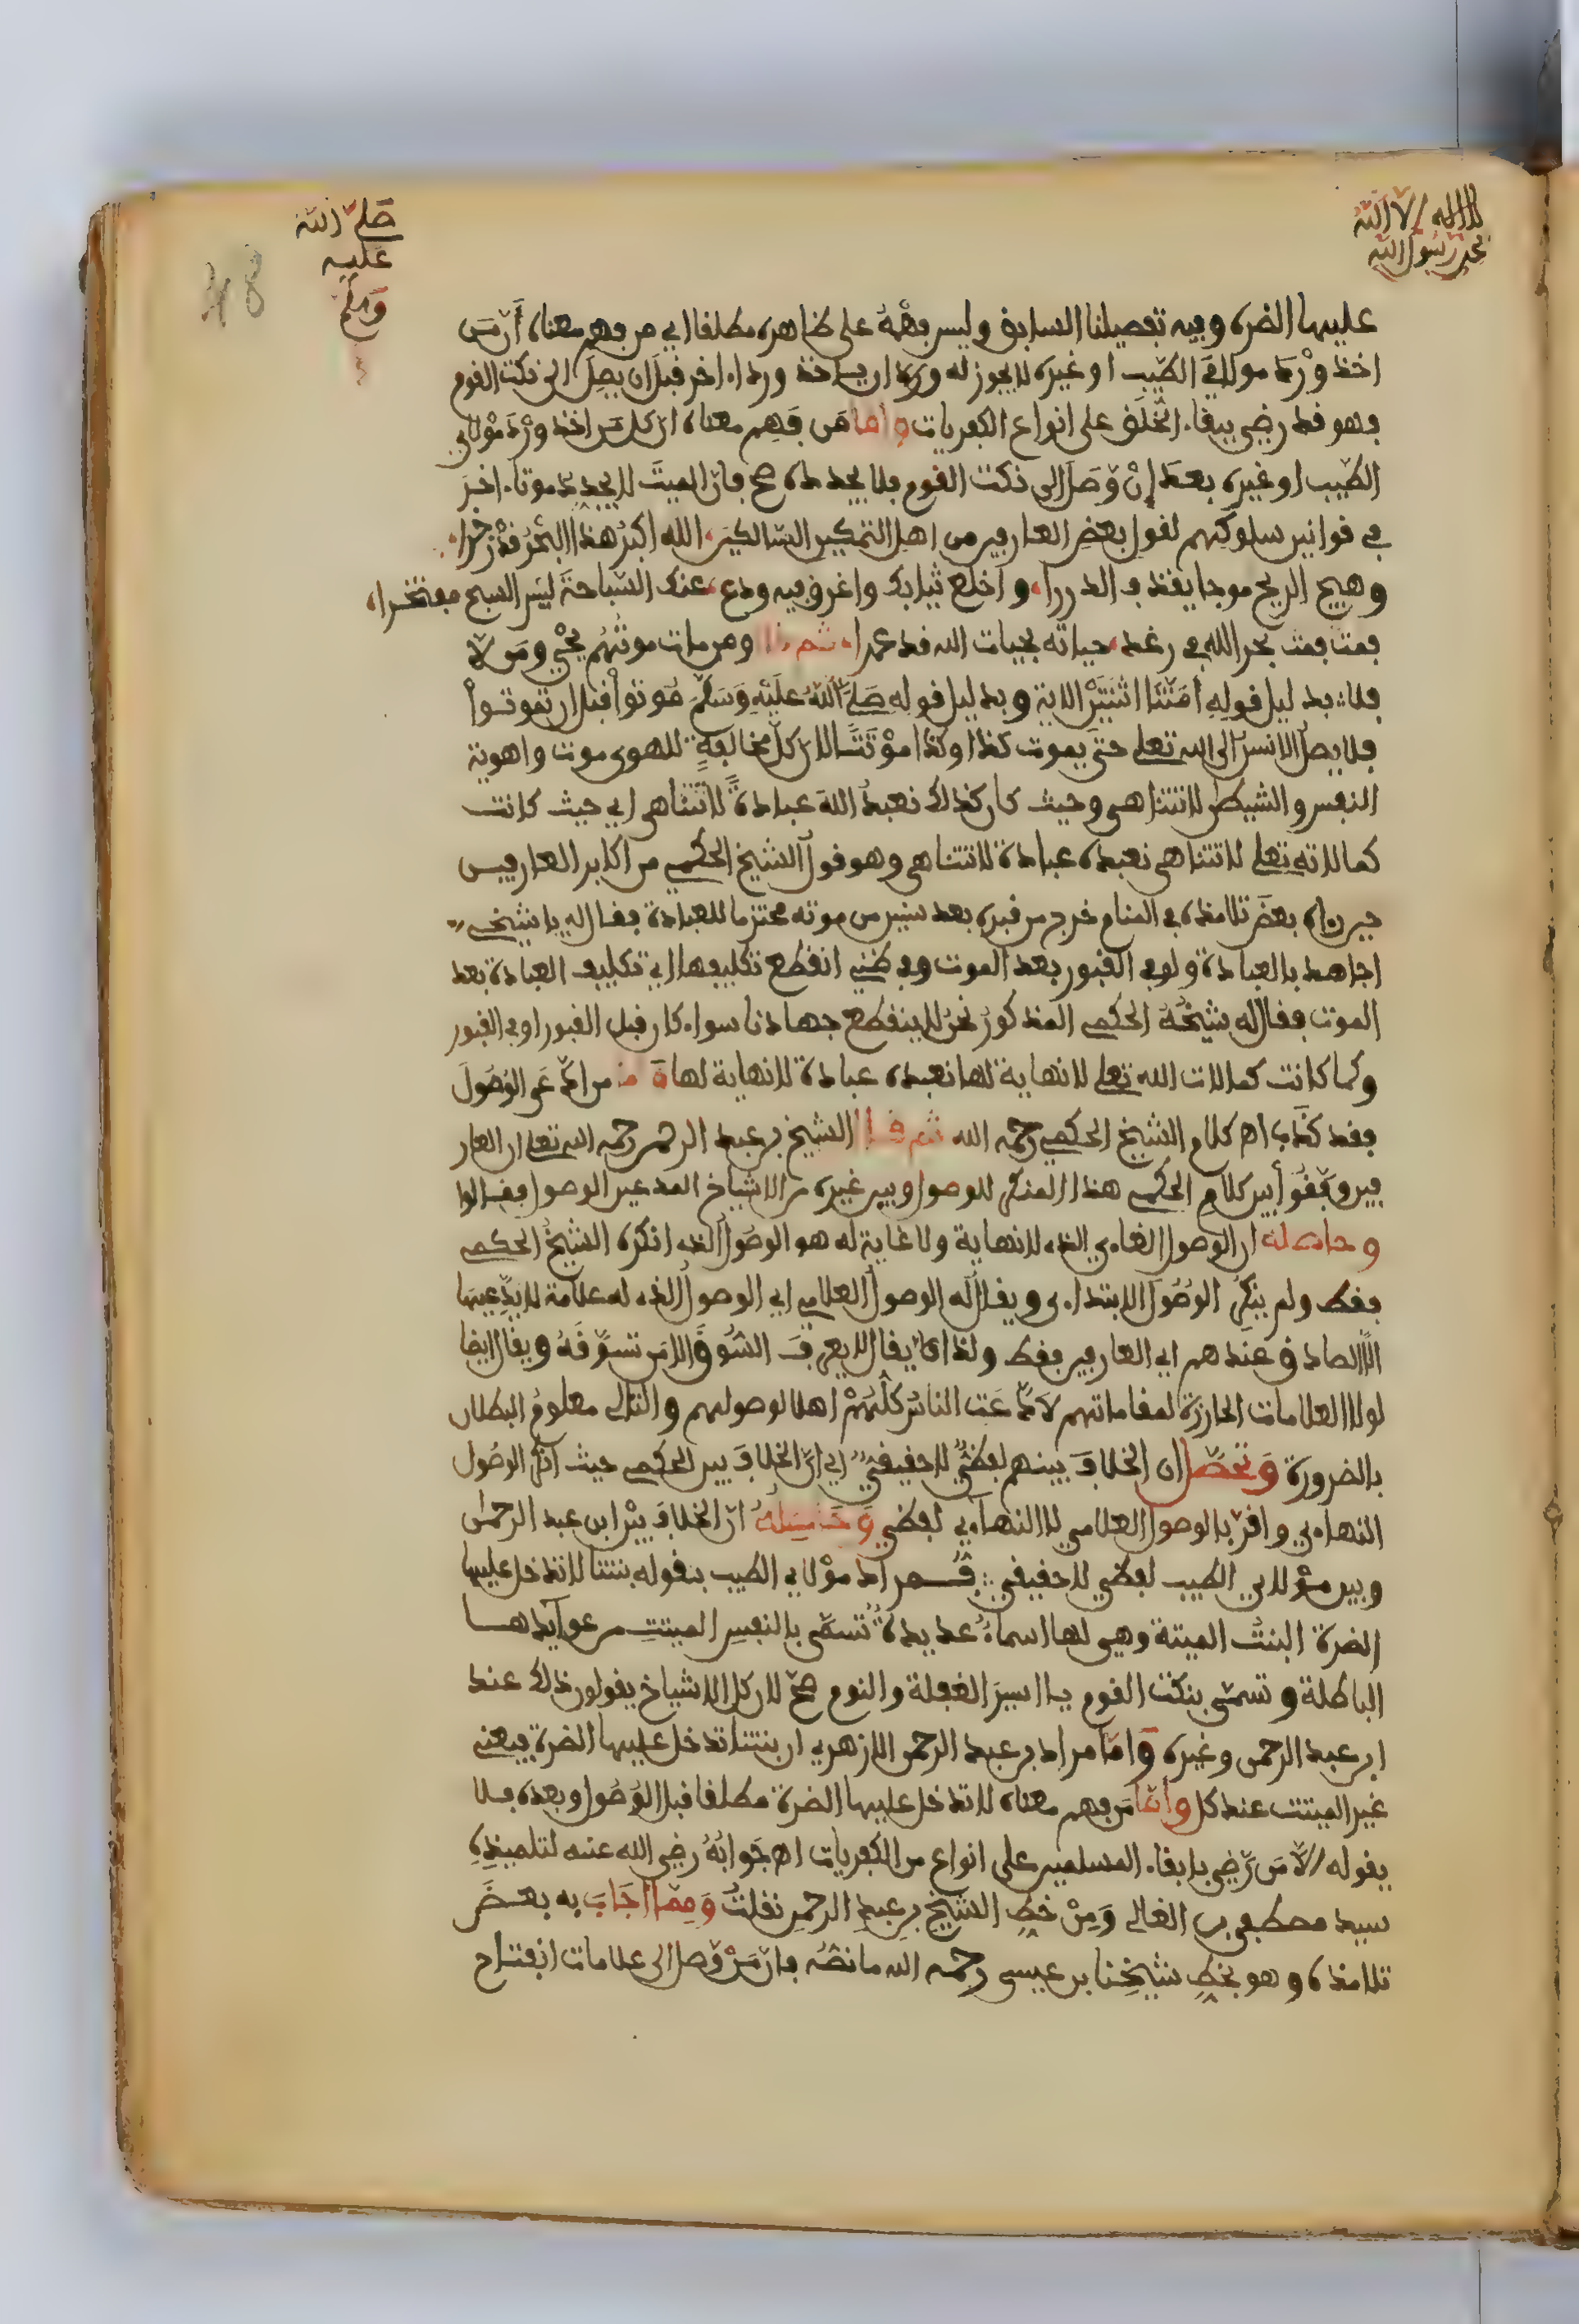 لا اله إلا الله
محمد رسول الله
صلى الله
عليه
وسلم
عليها الضرة وفيه تفصيلنا السابق وليس فهمه على ظاهره مطلقا اي من فهم معناه أن من
اخذ ورد مولاي الطيب او غيره لا يجوز له ان ياخذ وردا اخر قبل ان يصل الى نكت القوم
فهو قد رضي ببقاء الخلق على انواع الكفريات واما من فهم معناه ان كل من اخذ ورد مولاي
الطيب او غيره بعد إن وصل الى نكت القوم فلا يجدده صح فان الميت لا يجدد موتا اخر
في قوانين سلوكهم لقول بعض العارفين من اهل التمكين السالكين الله اكبر هذا البحر قد زخرا
وهيج الريح موجا يقذف الدررا واخلع ثيابك واغرق فيه ودع عنك السباحة ليس السبح مفتخرا
فمت فمت بحر الله في رغد حياته بحيات الله قد عمرا ومن مات موتهم يحي ومن لا
فلا بدليل قوله أمتنا اثنتين الاية وبدليل قوله صلى الله عليه وسلم موتوا قبل ان تموتوا
فلا يصل الانسن الى الله تعلى حتى يموت كذا وكذا موتة لان كل مخالفة للهوى موت واهوية
النفس والشيطن لا تتناهى وحيث كان كذلك نعبد الله عبادة لا تتناهى اي حيث كانت
كمالاته تعلى لا تتناهى نعبده عبادة لا تتناهى وهو قول الشيخ الحكمي من اكابر العارفين
حين رءاه بعض تلامذه في المنام خرج من قبره بعد سنين من موته محتزما للعبادة فقال له يا شيخي
اجاهد بالعبادة ولو في القبور بعد الموت وفي ظني انقطع تكليفها اي تكليف العبادة بعد
الموت فقال له شيخه الحكمي المذكور نحن لا ينقطع جهادنا سواء كان قبل القبور او في القبور
وكما كانت كمالات الله تعلى لا نهاية لها نعبده عبادة لا نهاية لها من ادعى الوصول
فقد كذب اه كلام الشيخ الحكمي رحمه الله ثم قال الشيخ بن عبد الرحمن رحمه الله تعلى ان العار
فين وقفوا بين كلام الحكمي هذا المنكر للوصول وبين غيره من الاشياخ المدعين الوصول فقالوا
وحاصله ان الوصول الغاءي الذي لا نهاية ولا غاية له هو الوصول الذي انكره الشيخ الحكمي
فقط ولم ينكر الوصول الابتداءي ويقال له الوصول العلامي اي الوصول الذي له علامة لا يدعيها
الا الصادق عندهم اي العارفين فقط ولذا يقال لا يعرف الشوق الا من تشوقه ويقال ايضا
لولا العلامات الحارزة لمقاماتهم لادعت الناس كلهم اهلا لوصولهم والتالى معلوم البطلان
بالضرورة وتحصل ان الخلاف بينهم لفظي لا حقيقي اي ان الخلاف بين الحكمي حيث انكر الوصول
النهاءي واقر بالوصول العلامي لا النهاءي لفظي وحاصله ان الخلاف بين ابن عبد الرحمن
وبين مولاي الطيب لفظي لا حقيقي فمراد مولاي الطيب بقوله بنتنا لا تدخل عليها
الضرة البنت الميتة وهي لها اسماء عديدة تسمى بالنفس الميتت من عوايدها
الباطلة وتسمى بنكت القوم يا اسير الغفلة والنوم صح لان كل الاشياخ يقولون ذلك عند
ابن عبد الرحمن وغيره واما مراد بن عبد الرحمن الازهري ان بنتنا تدخل عليها الضرة فيعني
غير الميتت عند كل واما من فهم معناه لا تدخل عليها الضرة مطلقا قبل الوصول وبعده فلا
يقوله إلا من رضي بابقاء المسلمين على انواع من الكفريات اه جوابه رضي الله عنه لتلميذه
سيد مصطفى بن الغالى ومن خط الشيخ بن عبد الرحمن نقلت ومما اجاب به بعض
تلامذه وهو بخط شيخنا بن عيسى رحمه الله ما نصه فان من وصل الى علامات انفتاح